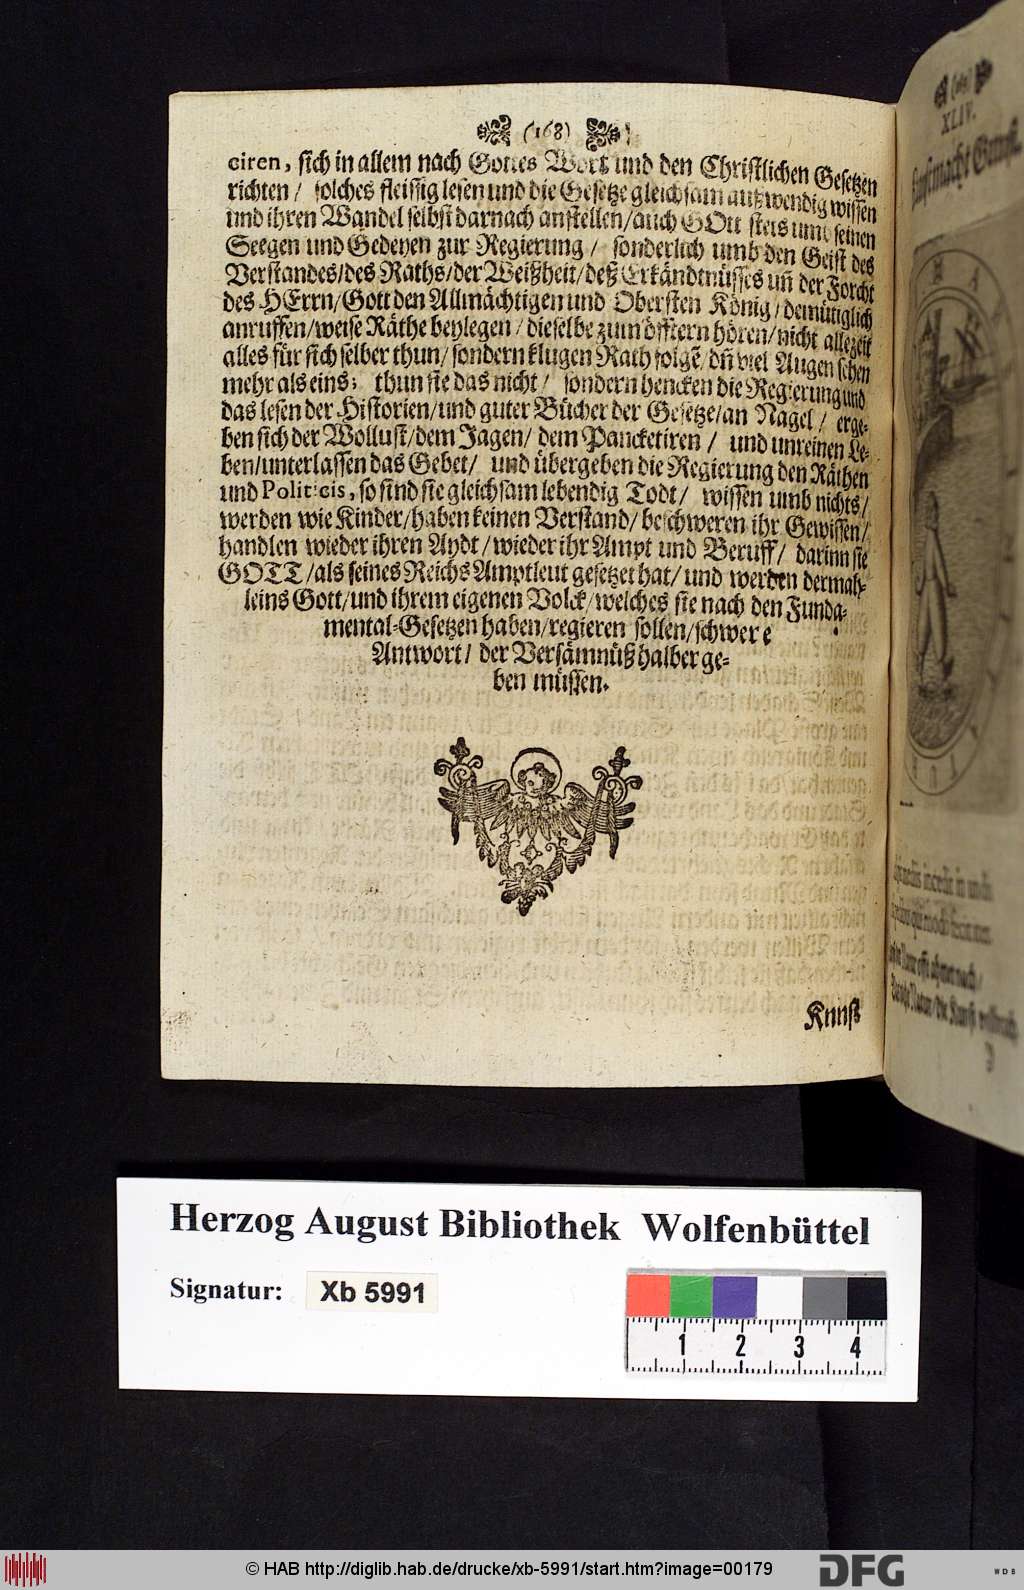 (168)
ciren, sich in allem nach Gottes Wort und den Christlichen Gesetzen
richten / solches fleissig lesen und die Gesetze gleichsam außwendig wissen
und ihren Wandel selbst darnach anstellen/auch GOtt stets umb seinen
Seegen und Gedeyen zur Regierung / sonderlich umb den Geist des
Verstandes/des Raths/der Weißheit/deß Erkändtnüsses uñ der Forcht
des HErrn/Gott den Allmächtigen und Obersten König / demütiglich
anruffen/weise Räthe beylegen / dieselbe zum öfftern hören/nicht allezeit
alles für sich selber thun/sondern klugen Rath folgẽ/dñ viel Augen sehen
mehr als eins; thun sie das nicht / sondern hencken die Regierung und
das lesen der Historien/und guter Bücher der Gesetze/an Nagel / erge-
ben sich der Wollust/dem Jagen/ dem Pancketiren / und unreinen Le-
ben/unterlassen das Gebet/ und übergeben die Regierung den Räthen
und Politicis, so sind sie gleichsam lebendig Todt/ wissen umb nichts/
werden wie Kinder/haben keinen Verstand/ beschweren ihr Gewissen/
handlen wieder ihren Aydt/wieder ihr Ampt und Beruff/ darinn sie
GOTT/als seines Reichs Amptleut gesetzet hat/und werden dermah-
leins Gott/und ihrem eigenen Volck/welches sie nach den Funda-
mental-Gesetzen haben/regieren sollen/schwere
Antwort/ der Versämnüß halber ge-
ben müssen.
Kunst
XLIV.
Herzog August Bibliothek Wolfenbüttel
Signatur: Xb 5991
1 2 3 4
© HAB http://diglib.hab.de/drucke/xb-5991/start.htm?image=00179
DFG
WDB